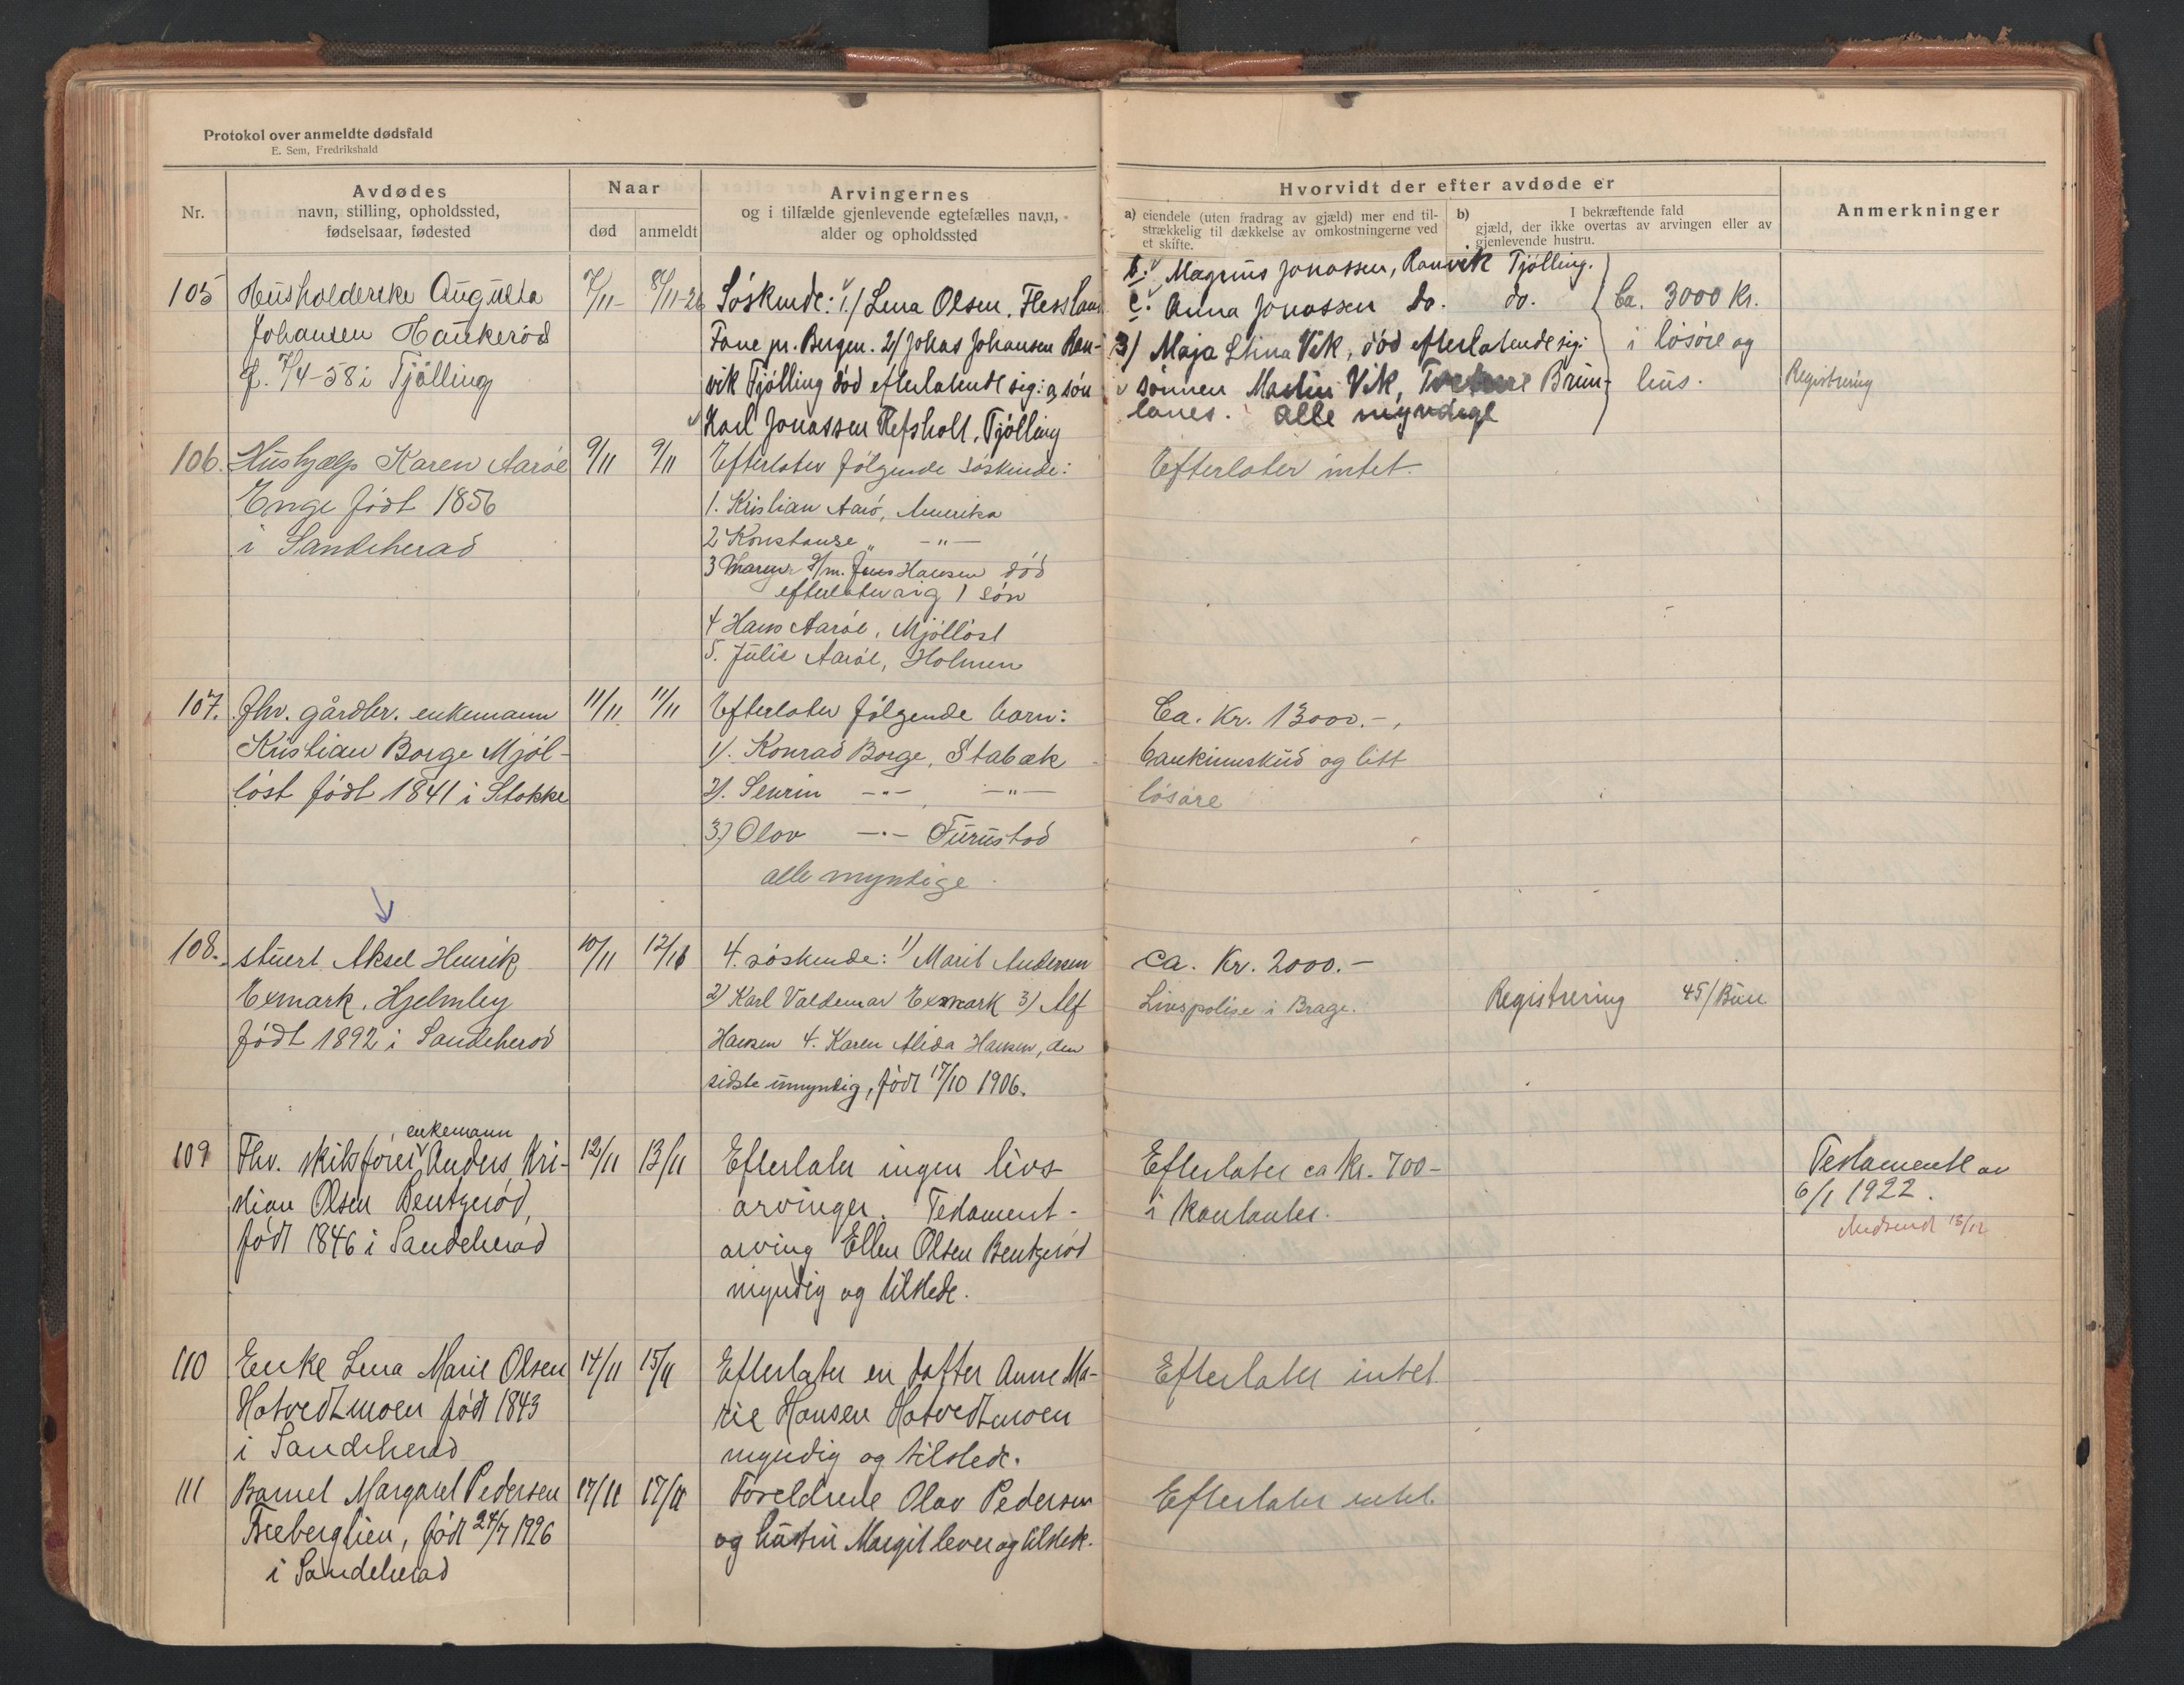 Protokol over anmeldte dødsfald
E. Sem, Fredrikshald
Nr.
Avdødes
navn, stilling, opholdssted,
fødselsaar, fødested
Naar
død
anmeldt
Arvingernes
og i tilfælde gjenlevende egtefælles navn,
alder og opholdssted
Hvorvidt der efter avdøde er
a) eiendele (uten fradrag av gjæld) mer end til-
strækkelig til dækkelse av omkostningerne ved
et skifte.
b) I bekræftende fald
gjæld, der ikke overtas av arvingen eller av
gjenlevende hustru.
Anmerkninger
105 Husholderske Augusta
Johansen Haukerød
f. 7/4-58 i Tjølling
7/11- 8/11-26
Søskende: 1/ Lena Olsen, Flessland
Fane pr. Bergen. 2/ Johas Johansen Ran-
vik Tjølling død efterlatende sig: a, søn
Karl Jonassen Refsholt, Tjølling
b. Magnus Jonassen, Ranvik Tjølling.
c. Anna Jonassen do. do.
3/ Maja Stina Vik, død efterlatende sig:
sønnen Martin Vik, Brun-
lanes. Alle myndige
Ca. 3000 Kr.
i løsøre og
hus.
Registrering
106. Hushjælp Karen Aarøe
Enge født 1856
i Sandeherad
9/11 9/11
Efterlater følgende søskende:
1. Kristian Aarø, Amerika
2 Konstanse „ -„-
3 Maren g/m. Jens Hansen død
efterlater sig 1 søn
4 Hans Aarøe, Mjølløst
5. Julie Aarøe, Holmen
Efterlater intet.
107. Fhv. gårdbr. enkemann
Kristian Borge Mjøl-
løst født 1841 i Stokke
11/11 11/11
Efterlater følgende barn:
1/. Konrad Borge, Stabæk
2/. Sevrin -„- , -„-
3) Olav -„- Furustad
alle myndige.
Ca. Kr. 13000.-,
bankinnskud og litt
løsøre
108. stuert Aksel Henrik
Exmark, Hjelmley
født 1892 i Sandeherad
10/11 12/11
4. søskende: 1) Marit Andersen
2) Karl Valdemar Exmark 3) Alf
Hansen 4. Karen Alida Hansen, den
sidste umyndig, født 17/10 1906.
ca. Kr. 2000.-
Livspolise i Brage.
Registrering 45/Bun
109 Fhv. skibsfører, enkemann Anders Kri-
stian Olsen Bentzerød,
født 1846 i Sandeherad
12/11 13/11
Efterlater ingen livs-
arvinger. Testament-
arving Ellen Olsen Bentzerød
myndig og tilstede.
Efterlater ca Kr. 700-
i kontanter.
Testamente av
6/1 1922.
Nedsendt 18/12
110 Enke Lena Marie Olsen
Hotvedtmoen født 1843
i Sandeherad
14/11 15/11
Efterlater en datter Anne Ma-
rie Hansen Hotvedtmoen
myndig og tilstede.
Efterlater intet
111 Barnet Margaret Pedersen
Breberglien, født 24/7 1926
i Sandeherad
17/11 17/11
Foreldrene Olav Pedersen
og hustru Margit lever og tilstede.
Efterlater intet.